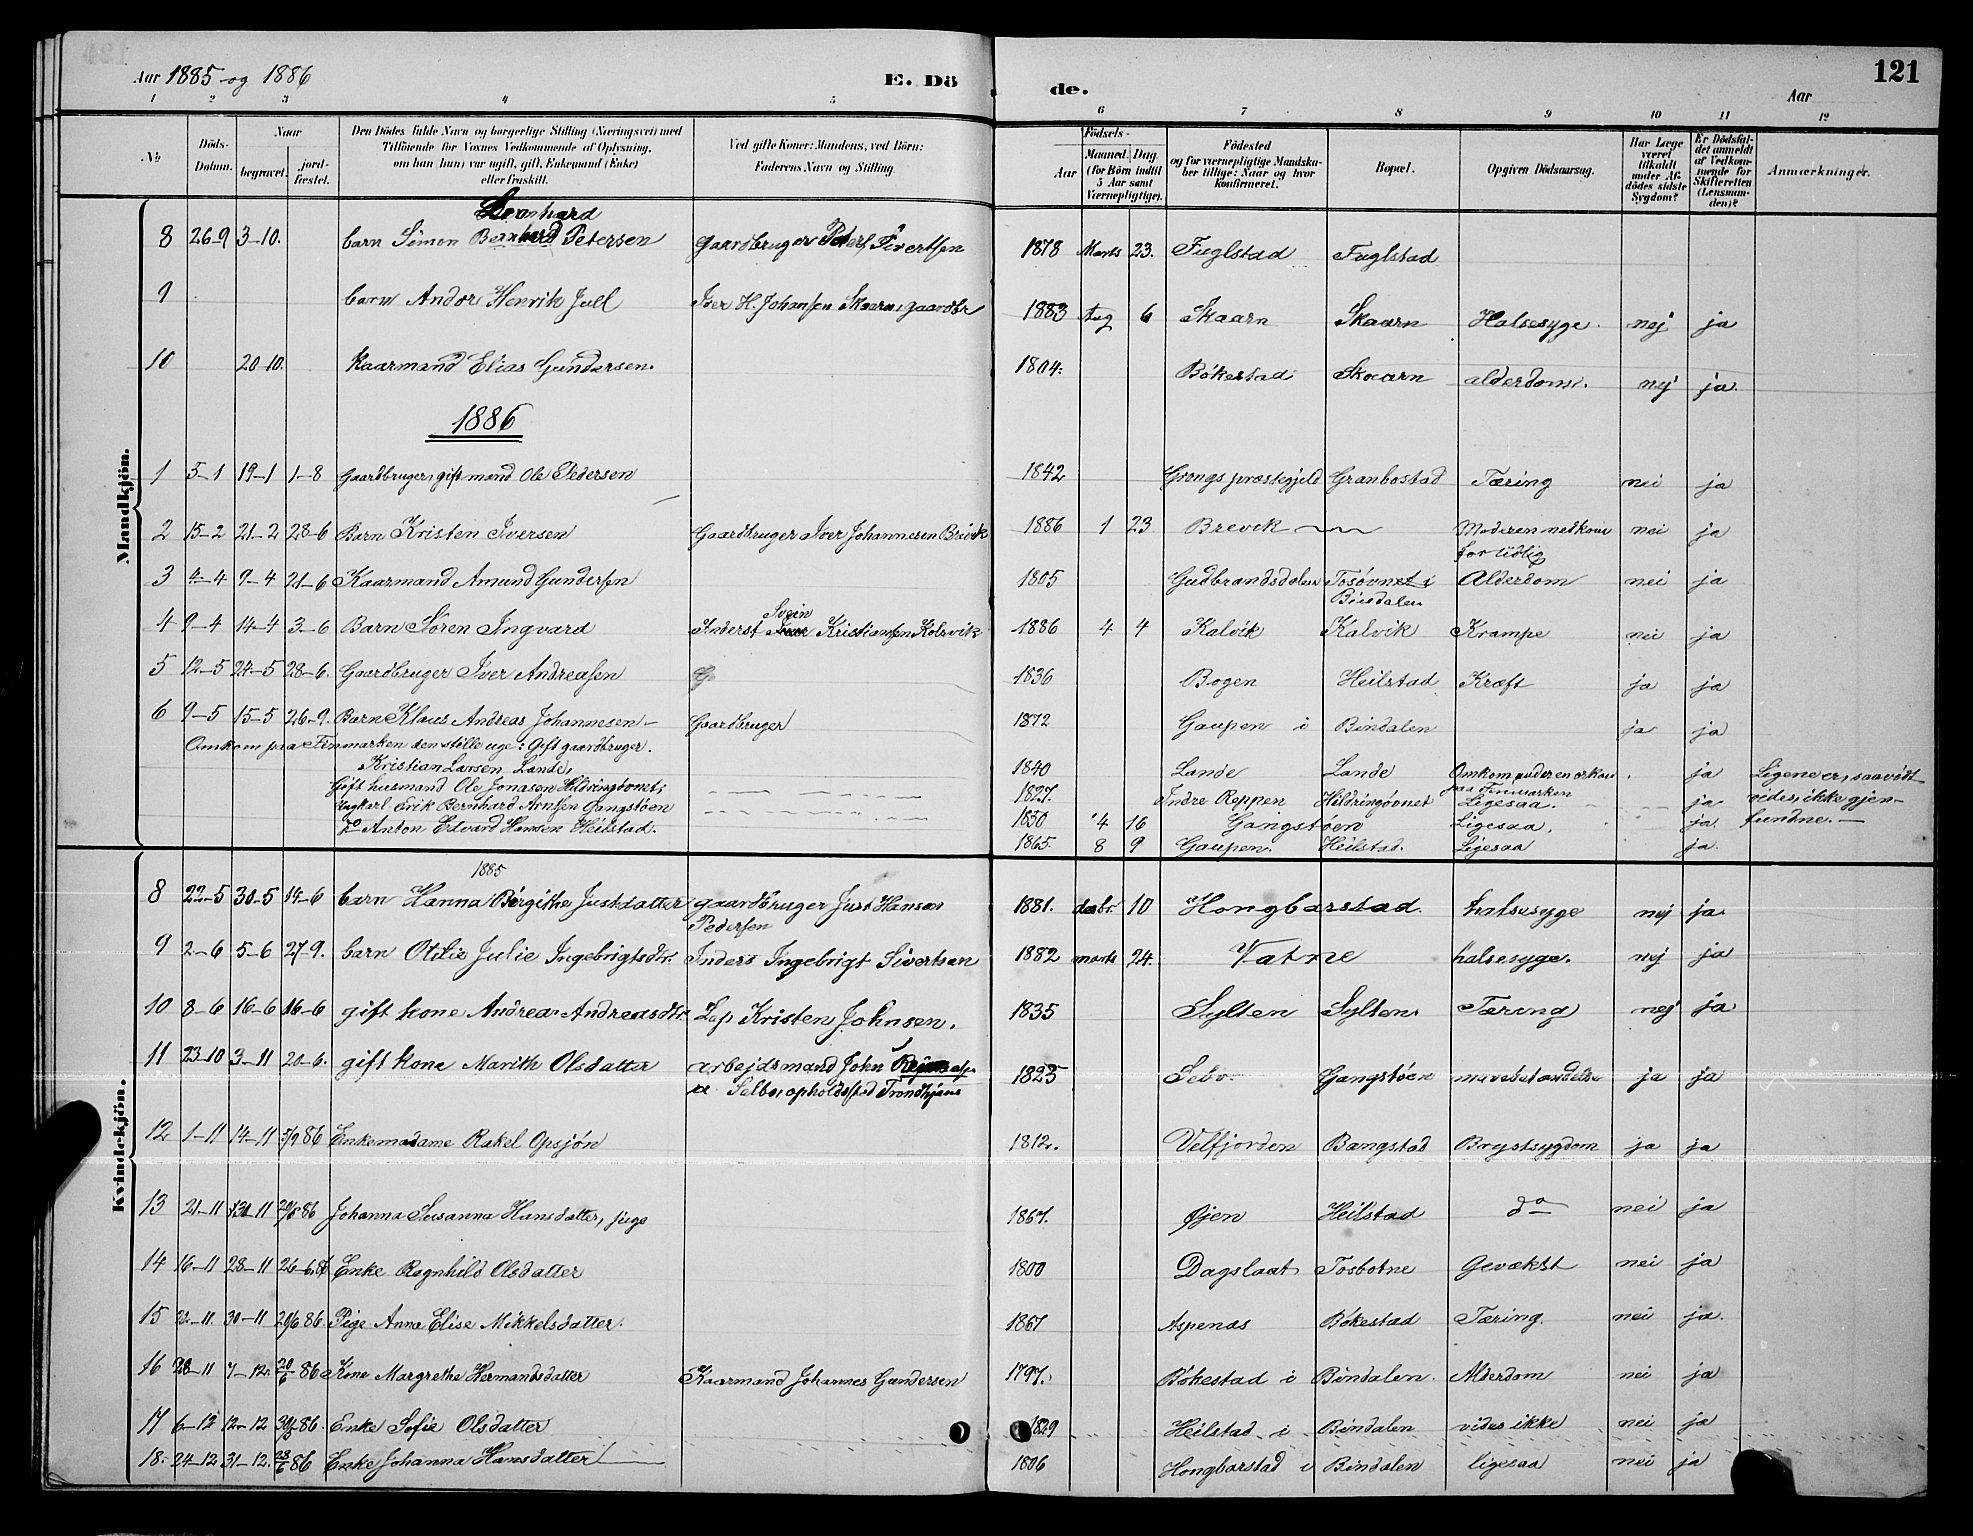 Aar 1885 og 1886 E. Dö de. Aar 121
1 2 3 4 5 6 7 8 9 10 11 12
№ Döds-Datum. Naar begravet. jordfæstet. Den Dödes fulde Navn og borgerlige Stilling (Næringsvei) med Tilföiende for Voxnes Vedkommende af Oplysning, om han (hun) var ugift, gift, Enkemand (Enke) eller fraskilt. Ved gifte Koner: Mandens, ved Börn: Faderens Navn og Stilling. Födsels- Aar Maaned. Dag. (for Börn indtil 5 Aar samt Værnepligtige). Födested og for værnepligtige Mandskaber tillige: Naar og hvor konfirmeret. Bopæl. Opgiven Dödsaarsag. Har Læge været tilkaldt under Afdödes sidste Sygdom? Er Dödsfaldet anmeldt af Vedkommende for Skifteretten (Lensmanden)? Anmærkninger.
Mandkjön.
8 26-9 3-10. barn Simon Bernhard Petersen gaardbruger Peter Sivertsen 1878 Marts 23. Fuglstad Fuglstad
9 barn Andor Henrik Jull Iver H. Johansen Skaarn, gaardbr 1883 Aug 6 Skaarn Skaarn Halsesyge. nej ja
10 20-10. Kaarmand Elias Gundersen. 1804. Bökestad Skaarn alderdoms. nej ja.
1886
1 5-1 19-1 1-8 Gaardbruger, gift mand Ole Pedersen 1842 Grongs præstegjeld Granbostad Tæring nei ja
2 15-2 21-2 28-6 Barn Kristen Iversen Gaardbruger Iver Johannesen Brevik 1886 1 23 Brevik Moderen nedkom for tidlig nei ja
3 4-4 9-4 21-6 Kaarmand Amund Gundersen 1805 Gudbrandsdalen Tosövnet i Bindalen Alderdom nei ja
4 9-4 14-4 3-6 Barn Sören Ingvard Inderst Svein Kristiansen Kolsvik 1886 4 4 Kalvik Kalvik Krampe nei ja
5 12-5 24-5 28-6. Gaardbruger Iver Andreasen 1836 Bogen Heilstad Kræft ja ja
6 9-5 15-5 26-9. Barn Klaus Andreas Johannesen Gaardbruger 1872 Gaupen i Bindalen ja ja
Omkom paa Finmarken den stille uge: Gift gaardbruger.
Kristian Larsen Lande, 1840 Lande Lande Omkom under en orkan paa Finmarken ja Ligene er, saavidt
Gift husmand Ole Jonasen Hildringövnet; 1827. Indre Reppen Hildringövnet Ligesaa. ja vides, ikke gjen-
Ungkarl Erik Bernhard Arntsen Gangstöen 1850 4 16 Gangstöen Ligesaa. ja. fundne.
do Anton Edvard Hansen Heilstad. 1865. 8 9 Gaupen. Heilstad. Ligesaa ja.
Kvindekjön.
1885
8 22-5 30-5 14-6 barn Hanna Birgitha Justdatter gaardbruger Just Hansen Pedersen 1881. decbr. 10 Hongbarstad. halsesyge nej ja.
9 2-6 5-6 27-9. barn Otilie Julie Ingebrigtsdtr. Inders Ingebrigt Sivertsen 1882 marts 24. Vatne halsesyge. nej ja
10 8-6 16-6 16-6 gift kone Andrea Andreasdtr. Lap Kristen Johnsen. 1835 Sylten Sylten Tæring nej ja
11 23-10 3-11 20-6. gift kone Marith Olsdatter arbejdsmand John Selbo, opholdssted Trondhjem 1825 Gangstöen ja ja
12 1-11 14-11 5/9 86 Enkemadame Rakel Opsjön 1812. Velfjorden Bangstad Brystsygdom ja ja
13 21-11 30-11 20/6 86 Johanna Susanna Hansdatter, pige 1867. Øjen Heilstad do nei ja
14 16-11 28-11 26-6.86 Enke Ragnhild Olsdatter 1800 Dagslaat Tosbotne Gevækst nei ja
15 21-11. 30-11 20/6 86. Pige Anna Elise Mikkelsdatter. 1867 Aspenæs Bökestad Tæring. nei ja.
16 28-11 7-12. 20/6 86 Kone Margrethe Hermansdatter Kaarmand Johannes Gundersen 1797. Bökestad i Bindalen. Alderdom nei ja
17 6-12 12-12 86. Enke Sofie Olsdatter 1829 Heilstad i Bindalen vides ikke nei ja
18. 24-12 31-12. 23/6 86 Enke Johanna Hansdatter 1806 Hongbarstad i Bindalen ligesaa nei ja